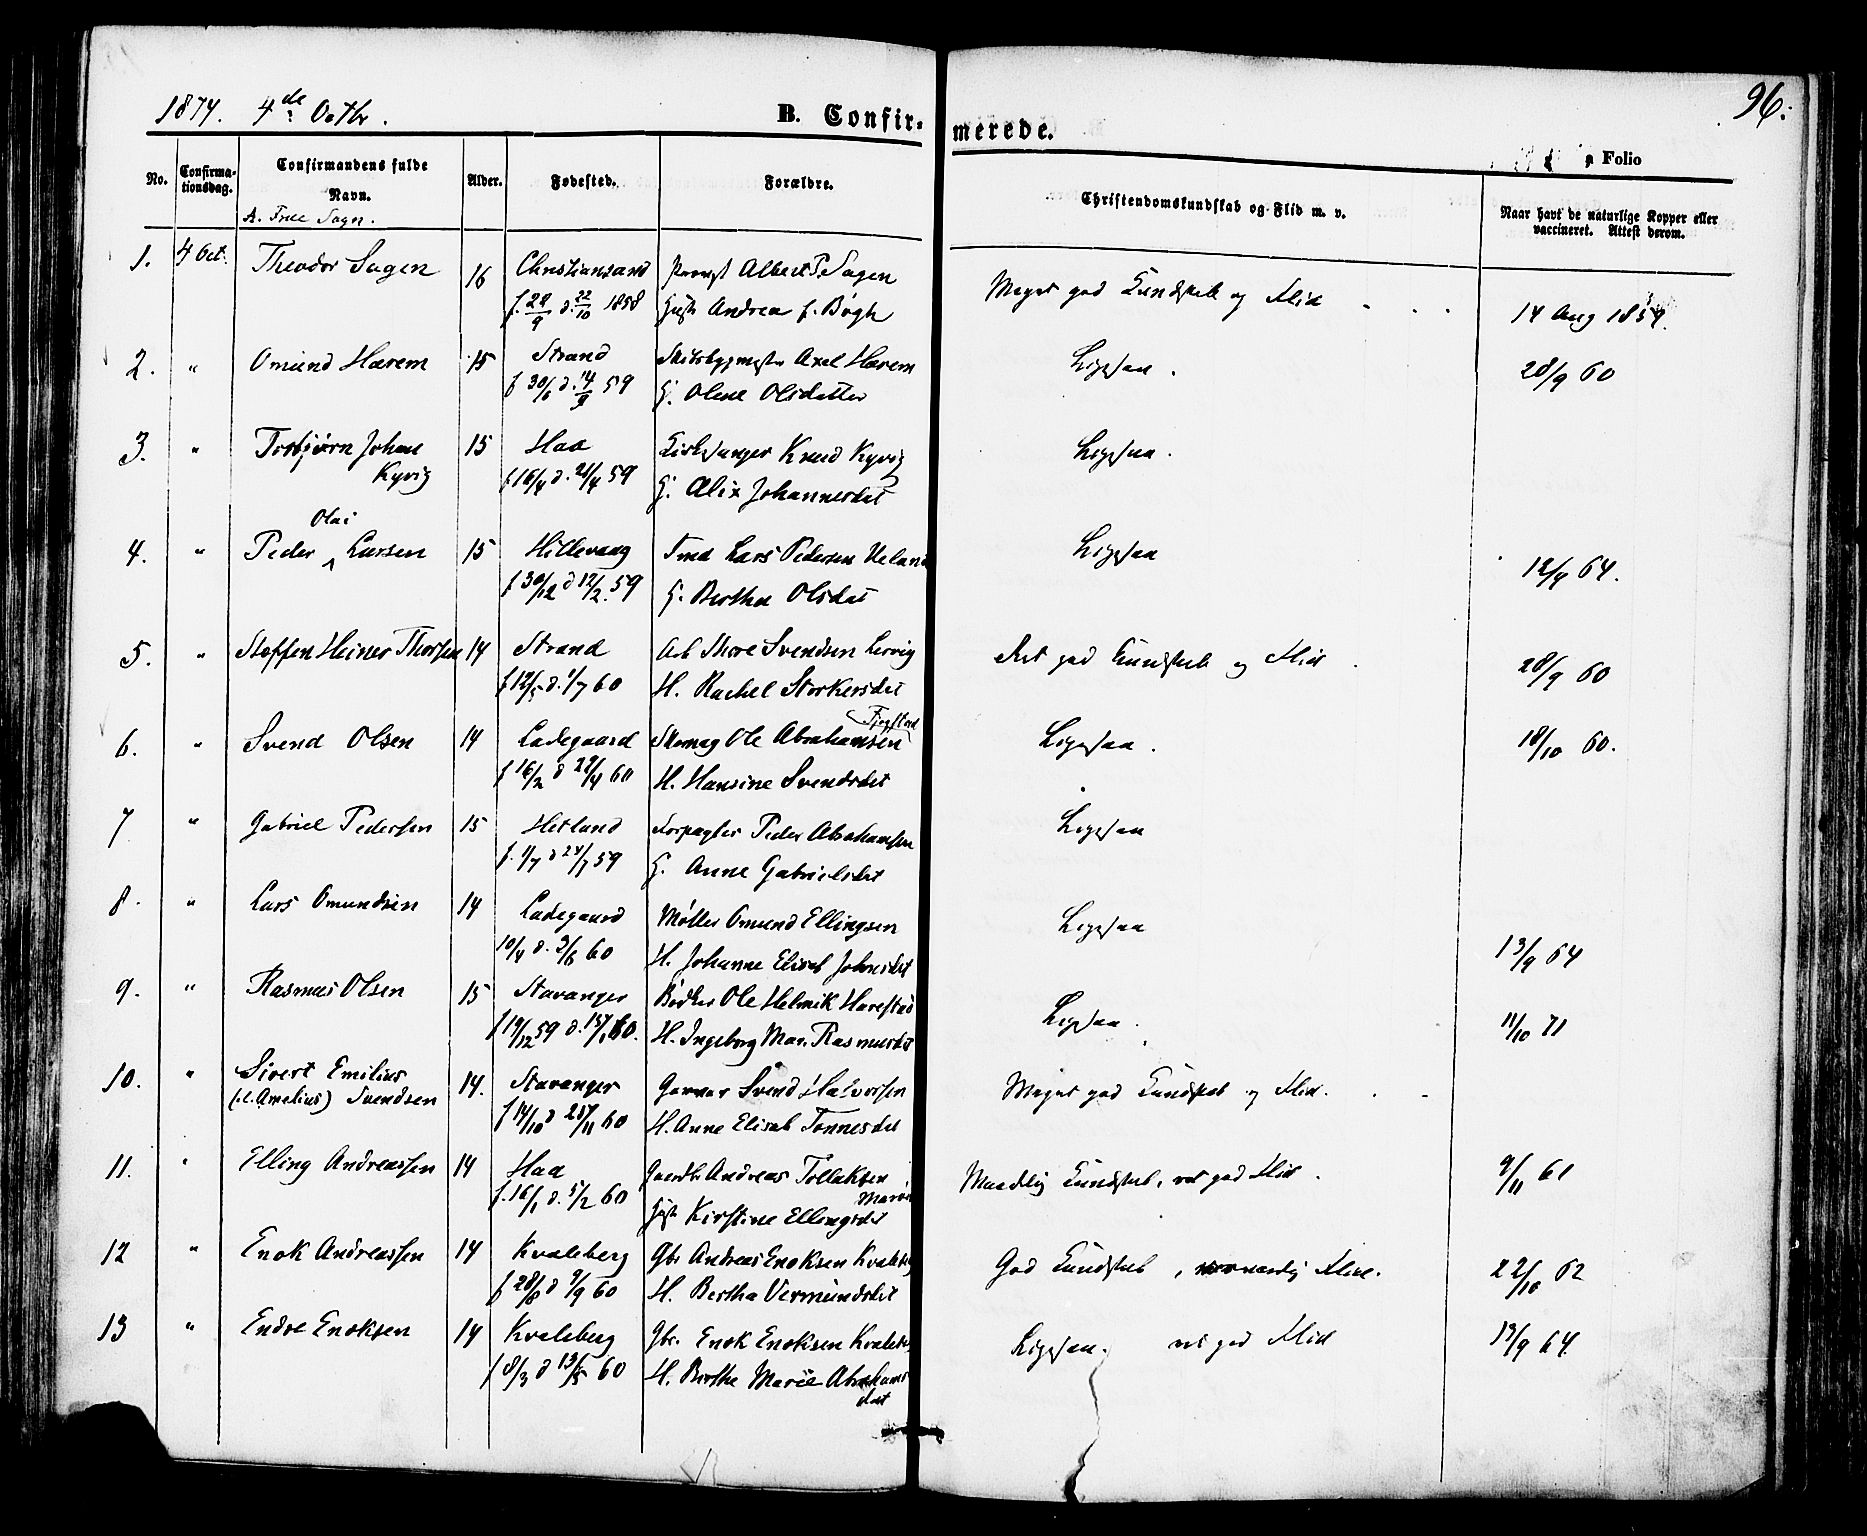 1874. 4de Octbr.
B. Confirmerede.
96.
Folio
No.
Confirmationsdag.
Confirmandens fulde Navn.
Alder.
Fødested.
Forældre.
Christendomskundskab og Flid m. v.
Naar havt de naturlige Kopper eller vaccineret. Attest derom.
A. Frue Sogn.
1. 4 Oct. Theodor Sagen 16 Christiansand Provst Albert P Sagen Meget god Kundskab og Flid
f. 29/9 d. 22/10 1858 Hust Andrea f. Bøgh 14 Aug 1859.
2. " Omund Harem 15 Strand Skibsbygmester Axel Harem Ligesaa. 28/9 60
f 30/6 d. 14/9 59 H. Olene Olsdatter
3. " Torbjørn Johne 15 Haa Kirkesanger Knud Kyvig Ligesaa.
Kyvig f 16/4 d. 21/4 59 H. Alix Johannesdat
Olai
4. " Peder Larsen 15 Hillevaag Smed Lars Pedersen Ueland Ligesaa 12/4 64.
f 30/12 d 12/2. 59 H. Bertha Olsdat
5. " Steffen Heiner Thorsen 14 Strand Arb Thore Svendsen Lervig Ret god Kundskab og Flid. 28/9 60
f 12/5 d. 1/7 60 H. Rachel Storkersdat
6. " Svend Olsen 14 Ladegaard Skomag Ole Abrahamsen Fjogstad Ligesaa. 18/10 60.
f 16/2 d 22/4 60 H. Hansine Svendsdat
7 " Gabriel Pedersen 15 Hetland Forpagter Peder Abrahamsen Ligesaa
f. 1/7 d 24/7 59 H. Anne Gabrielsdat
8. " Lars Omundsen 14 Ladegaard Møller Omund Ellingsen Ligesaa
10/4 d. 3/6 60 H. Johanne Elisab Johnsdat 13/9 64
9. " Rasmus Olsen 15 Stavanger Bødker Ole Helmik Harestad Ligesaa.
f 19/12 59 d. 15/1 60. H. Ingeborg Mar. Rasmusdat 11/10 71
10. " Sivert Emilius 14. Stavanger Garver Svend Halvorsen Meget god Kundskab og Flid.
(el. Amelius) Svendsen f 14/10 d 25/11 60 H. Anne Elisab Tønnesdat
11. " Elling Andreassen 14 Haa Gaardb. Andreas Tollaksen Maadelig Kundskab, ret god Flid. 9/11 61
f. 16/1 d. 5/2 60 Hust Kirstine Marie Ellingsdat
12 " Enok Andreassen 14 Kvaleberg Gbr Andreas Enoksen Kvaleberg God Kundskab, Flid. 22/10 62
f 28/8 d 9/9 60 H. Bertha Vermundsdat
13 " Endre Enoksen 14 Kvaleberg Gbr. Enok Enoksen Kvaleb Ligesaa. ret god Flid 13/9 64.
f 8/3 d 13/5 60 H. Berthe Marie Abrahams
dat